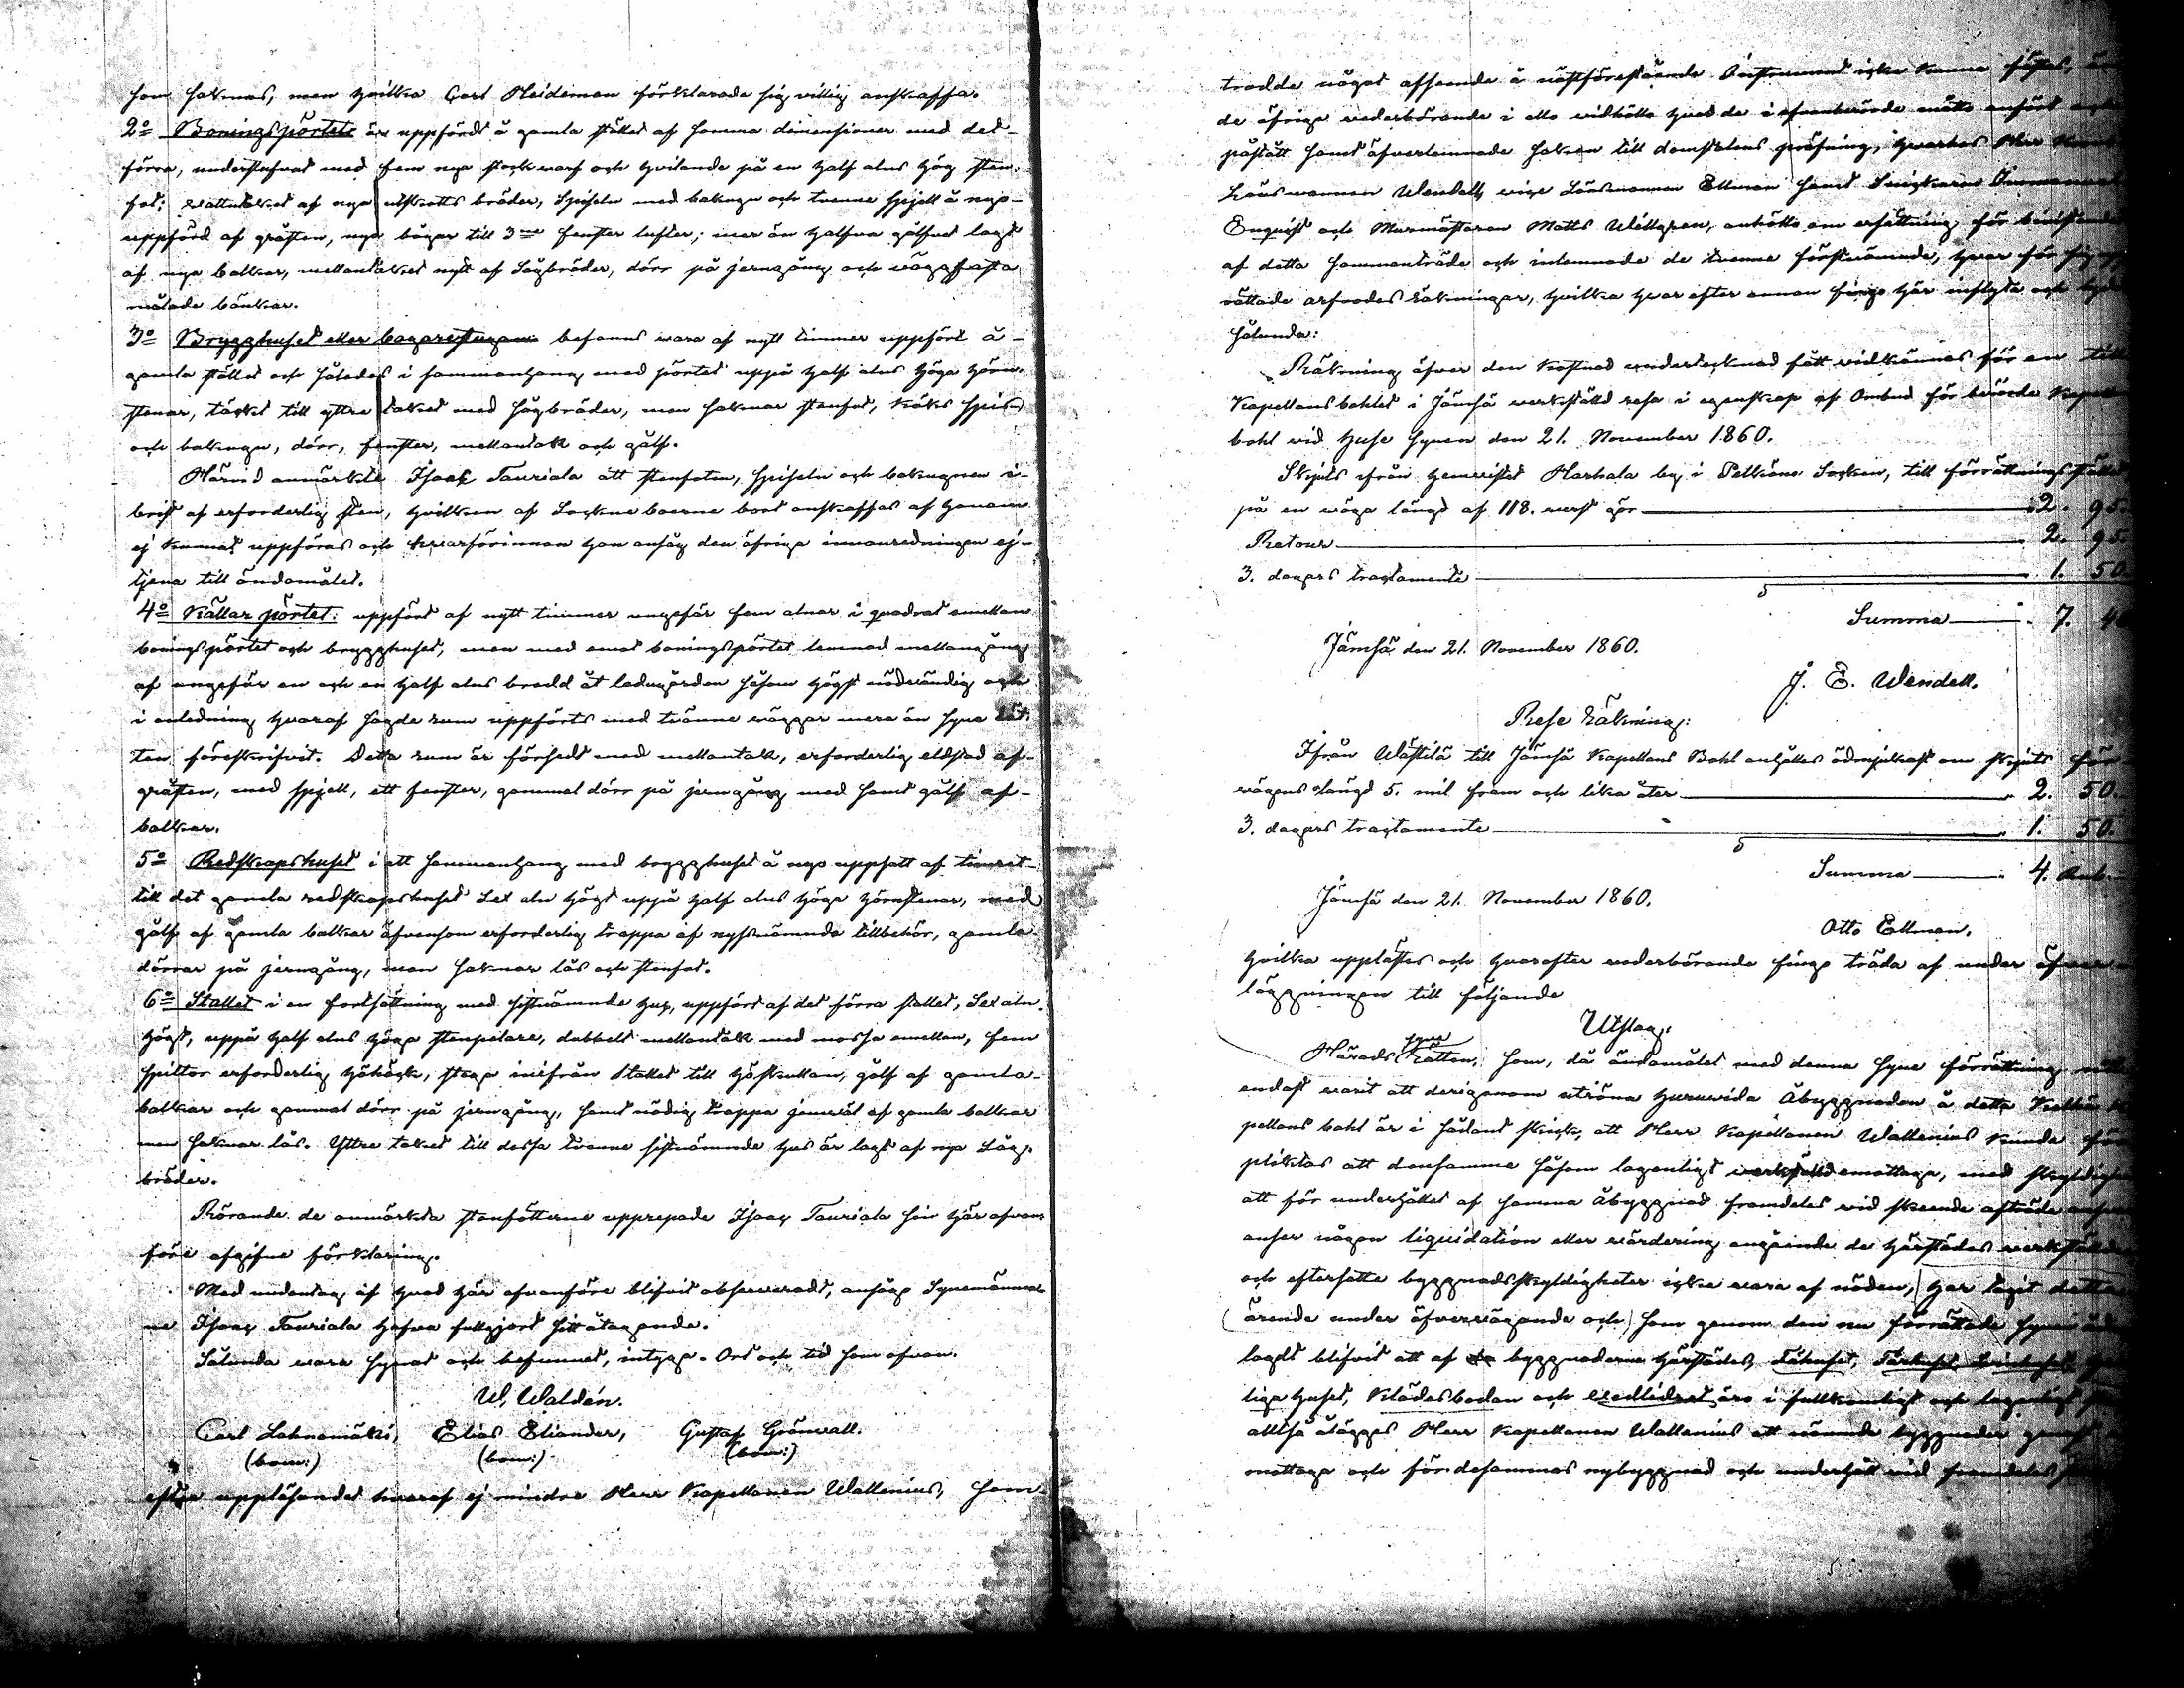 som saknas, men hvilka Carl Heideman förklarade sig villig anskaffa.
2o Boningspörtet är uppfördt å gamla stället af samma dimensioner med det
förra, understufvat med fem nya stockvarf och hvilande på en half alns hög sten-
fot; vattutaket af nya utskotts bräder, Spiseln med bakugn och tvenne spjell å nyo
uppförd af gråsten, nya bågar till 3ne fenster lufter; mer än halfva golfvet lagt
af nya balkar, mellantaket nytt af Sågbräder, dörr på jerngång och väggfasta
målade bänkar.
3o Brygghuset eller bagarestugan befanns vara af nytt timmer uppfördt å
gamla stället och således i sammanhang med pörtet uppå half alns höga hörn-
stenar, täckt till yttre taket med sågbräder, men saknar stenfot, köks spis
och bakugn, dörr, fenster, mellantak och golf.
Härvid anmärkte Isaac Tauriala att stenfoten, spiseln och bakugnen i
brist af erforderlig sten, hvilken af Sockneboerne bort anskaffas af honom
ej kunnat uppföras och hvarförinnan han ansåg den öfriga innanredningen ej
tjena till ändamålet.
4o Källar pörtet: uppfördt af nytt timmer ungefär fem alnar i quadrat emellan
boningspörtet och brygghuset, men med emot boningspörtet lemnad mellangång
af ungefär en och en half alns bredd åt ladugården såsom högst nödvändig och
i anledning hvaraf sagde rum uppförts med tvänne väggar mera än Syne Rät-
ten föreskrifvit. Detta rum är försedt med mellantak, erforderlig eldstad af
gråsten, med spjell, ett fenster, gammal dörr på jerngång med samt golf af
balkar.
5o Redskapshuset i ett sammanhang med brygghuset å nyo uppsatt af timret
till det gamla redskapshuset Sex aln högt uppå half alns höga hörnstenar, med
golf af gamla balkar äfvensom erforderlig trappa af nyssnämnda tillbehör, gamla
dörrar på jerngång, men saknar lås och stenfot.
6o Stallet i en fortsättning med sistnämnde hus, uppfördt af det förra stallet, Sex aln
högt, uppå half alns höga stenpelare, dubbelt mellantak med mossa emellan, fem
spiltor erforderlig höhäck, stege inifrån Stallet till höskullan, golf af gamla
balkar och gammal dörr på jerngång, samt nödig trappa jemväl af gamla balkar
men saknar lås. Yttre taket till dessa tvenne sistnämnde hus är lagt af nya Såg-
bräder.
Rörande de anmärkta stenfötterne upprepade Isaac Tauriala sin här ofvan
före afgifne förklaring.
Med undantag af hvad här ofvanföre blifvit observeradt, ansågo Synemänner
ne Isaac Tauriala hafva fullgjort sitt åtagande.
Sålunda vara synat och befunnet, intyga. Ort och tid som ofvan.
W. Waldén.
Carl Lahnamäki, Elias Eliander, Gustaf Grönvall.
(bom:) (bom:) (bom:)
efter uppläsandet hvaraf ej mindre Herr Kapellanen Wallenius, som
trodde något afseende å nästförestående Instrument icke kunna fästas,
de öfriga vederbörande i allo vidhöllo hvad de i ofvanberörde måtto anfört och
påstått samt öfverlemnade saken till domstolens pröfning, hvarhos Herr
Länsmannen Wendell, vice Länsmannen Ellman samt Snickaren
Enquist och Murmästaren Matts Willgren, anhöllo om ersättning för
af detta sammanträde och inlemnade de tvenne förstnämnde, hvar för sig upp
rättade arfvodes räkningar, hvilka hvar efter annan fingo här inflyta och lyda
sålunda:
Räkning öfver den kostnad undertecknad fått vidkännas för en till
Kapellansbohlet i Jämsä verkställd resa i egenskap af Ombud för berörde Kapell
bohl vid huse synen den 21. November 1860.
Skjuts ifrån hemvistet Harhala by i Pelkäne Socken, till förrättnings stället
på en väga längd af 118. verst gör 2. 95.
Retour 2. 95.
3. dagars tractamente 1. 50.
Summa 7. 4
Jämsä den 21. November 1860.
J. E. Wendell.
Rese räkning:
Ifrån Wästilä till Jämsä Kapellans Bohl anhålles ödmjukast om skjuts för
vägens längd 5. mil fram och lika åter 2. 50.
3. dagars tractamente 1. 50.
Summa 4.
Jämsä den 21. November 1860.
Otto Ellman.
hvilka upplästes och hvarefter vederbörande fingo träda af under öfver
läggningen till följande
Utslag:
Härads syne Rätten, som, då ändamålet med denna Syne förrättning
endast varit att derigenom utröna huruvida Åbyggnaden å detta
pellans bohl är i sådant skick, att Herr Kapellanen Wallenius kunde för
pliktas att densamma såsom lagenligt verkställd emottaga, med skyldighet
att för underhållet af samma åbyggnad framdeles vid skeende afträde
anser någon liquidation eller värdering angående de härstädes verkställda
och eftersatte byggnadsskyldigheter icke vara af nöden, har tagit detta
ärende under öfvervägande och som genom den nu förrättade syn
lagdt blifvit att af byggnaderna härstädes, Fähuset, Fårhuset,
liga huset, Klädesboden och Vedlidret äro i fullkomligt och lagenligt
alltså ålägges Herr Kapellanen Wallenius att nämnde byggnader genast
mottaga och för desammas nybyggnad och underhåll vid framdeles